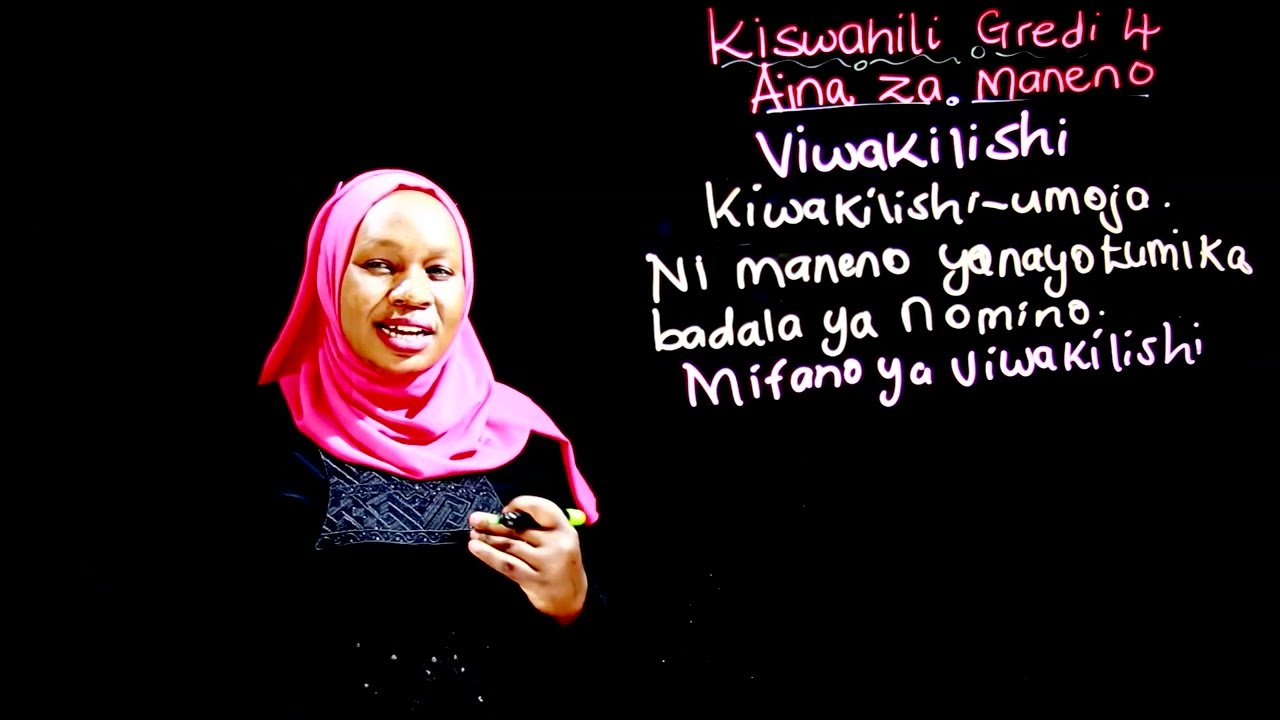 Kiswahili Gredi 4
Aina za Maneno
Viwakilishi
Kiwakilishi-umoja.
Ni maneno yanayotumika
badala ya Nomino.
Mifano ya viwakilishi